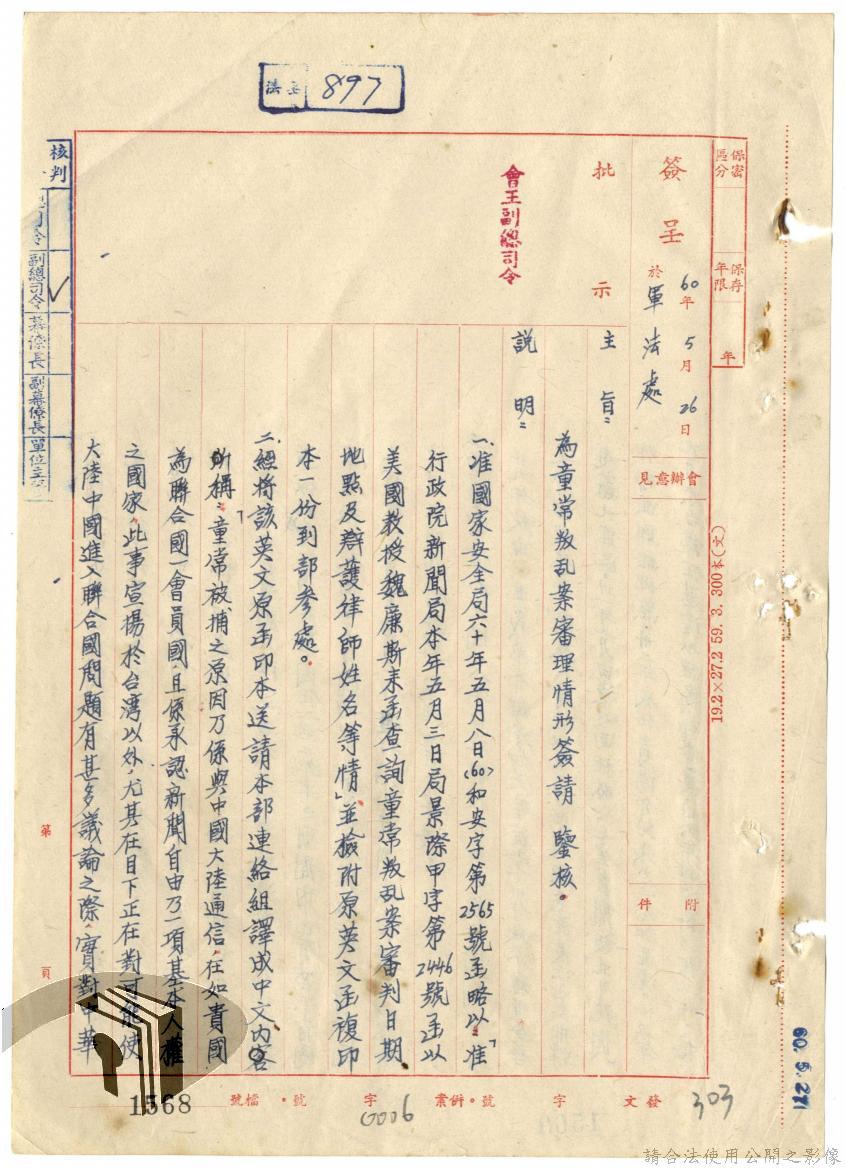 法立 897
保密區分
保存年限 年
簽呈 60年5月26日 於軍法處
會辦意見
附件
批示
會王副總司令
主旨：
為童常叛乱案審理情形簽請 鑒核。
說明：
一、准國家安全局六十年五月八日(60)和安字第2565號函略以：「准
行政院新聞局本年五月三日局景際甲字第2446號函以
美國教授魏廉斯來函查詢童常叛乱案審判日期
地點及辯護律師姓名等情」並檢附原英文函複印
本一份到部參處。
二、經將該英文原函印本送請本部連絡組譯成中文內容
所稱：「童常被捕之原因乃係與中國大陸通信，在如貴國
為聯合國一會員國，且係承認新聞自由乃一項基本人權
之國家，此事宣揚於台灣以外，尤其在目下正在對可能使
大陸中國進入聯合國問題有甚多議論之際，實對中華
核判
副總司令
幕僚長
副幕僚長
單位主
第 頁
19.2×27.2 59. 3. 300本(文)
60. 5. 27
發文 字 號・併案 字 號・檔號
303
0006
1568
請合法使用公開之影像